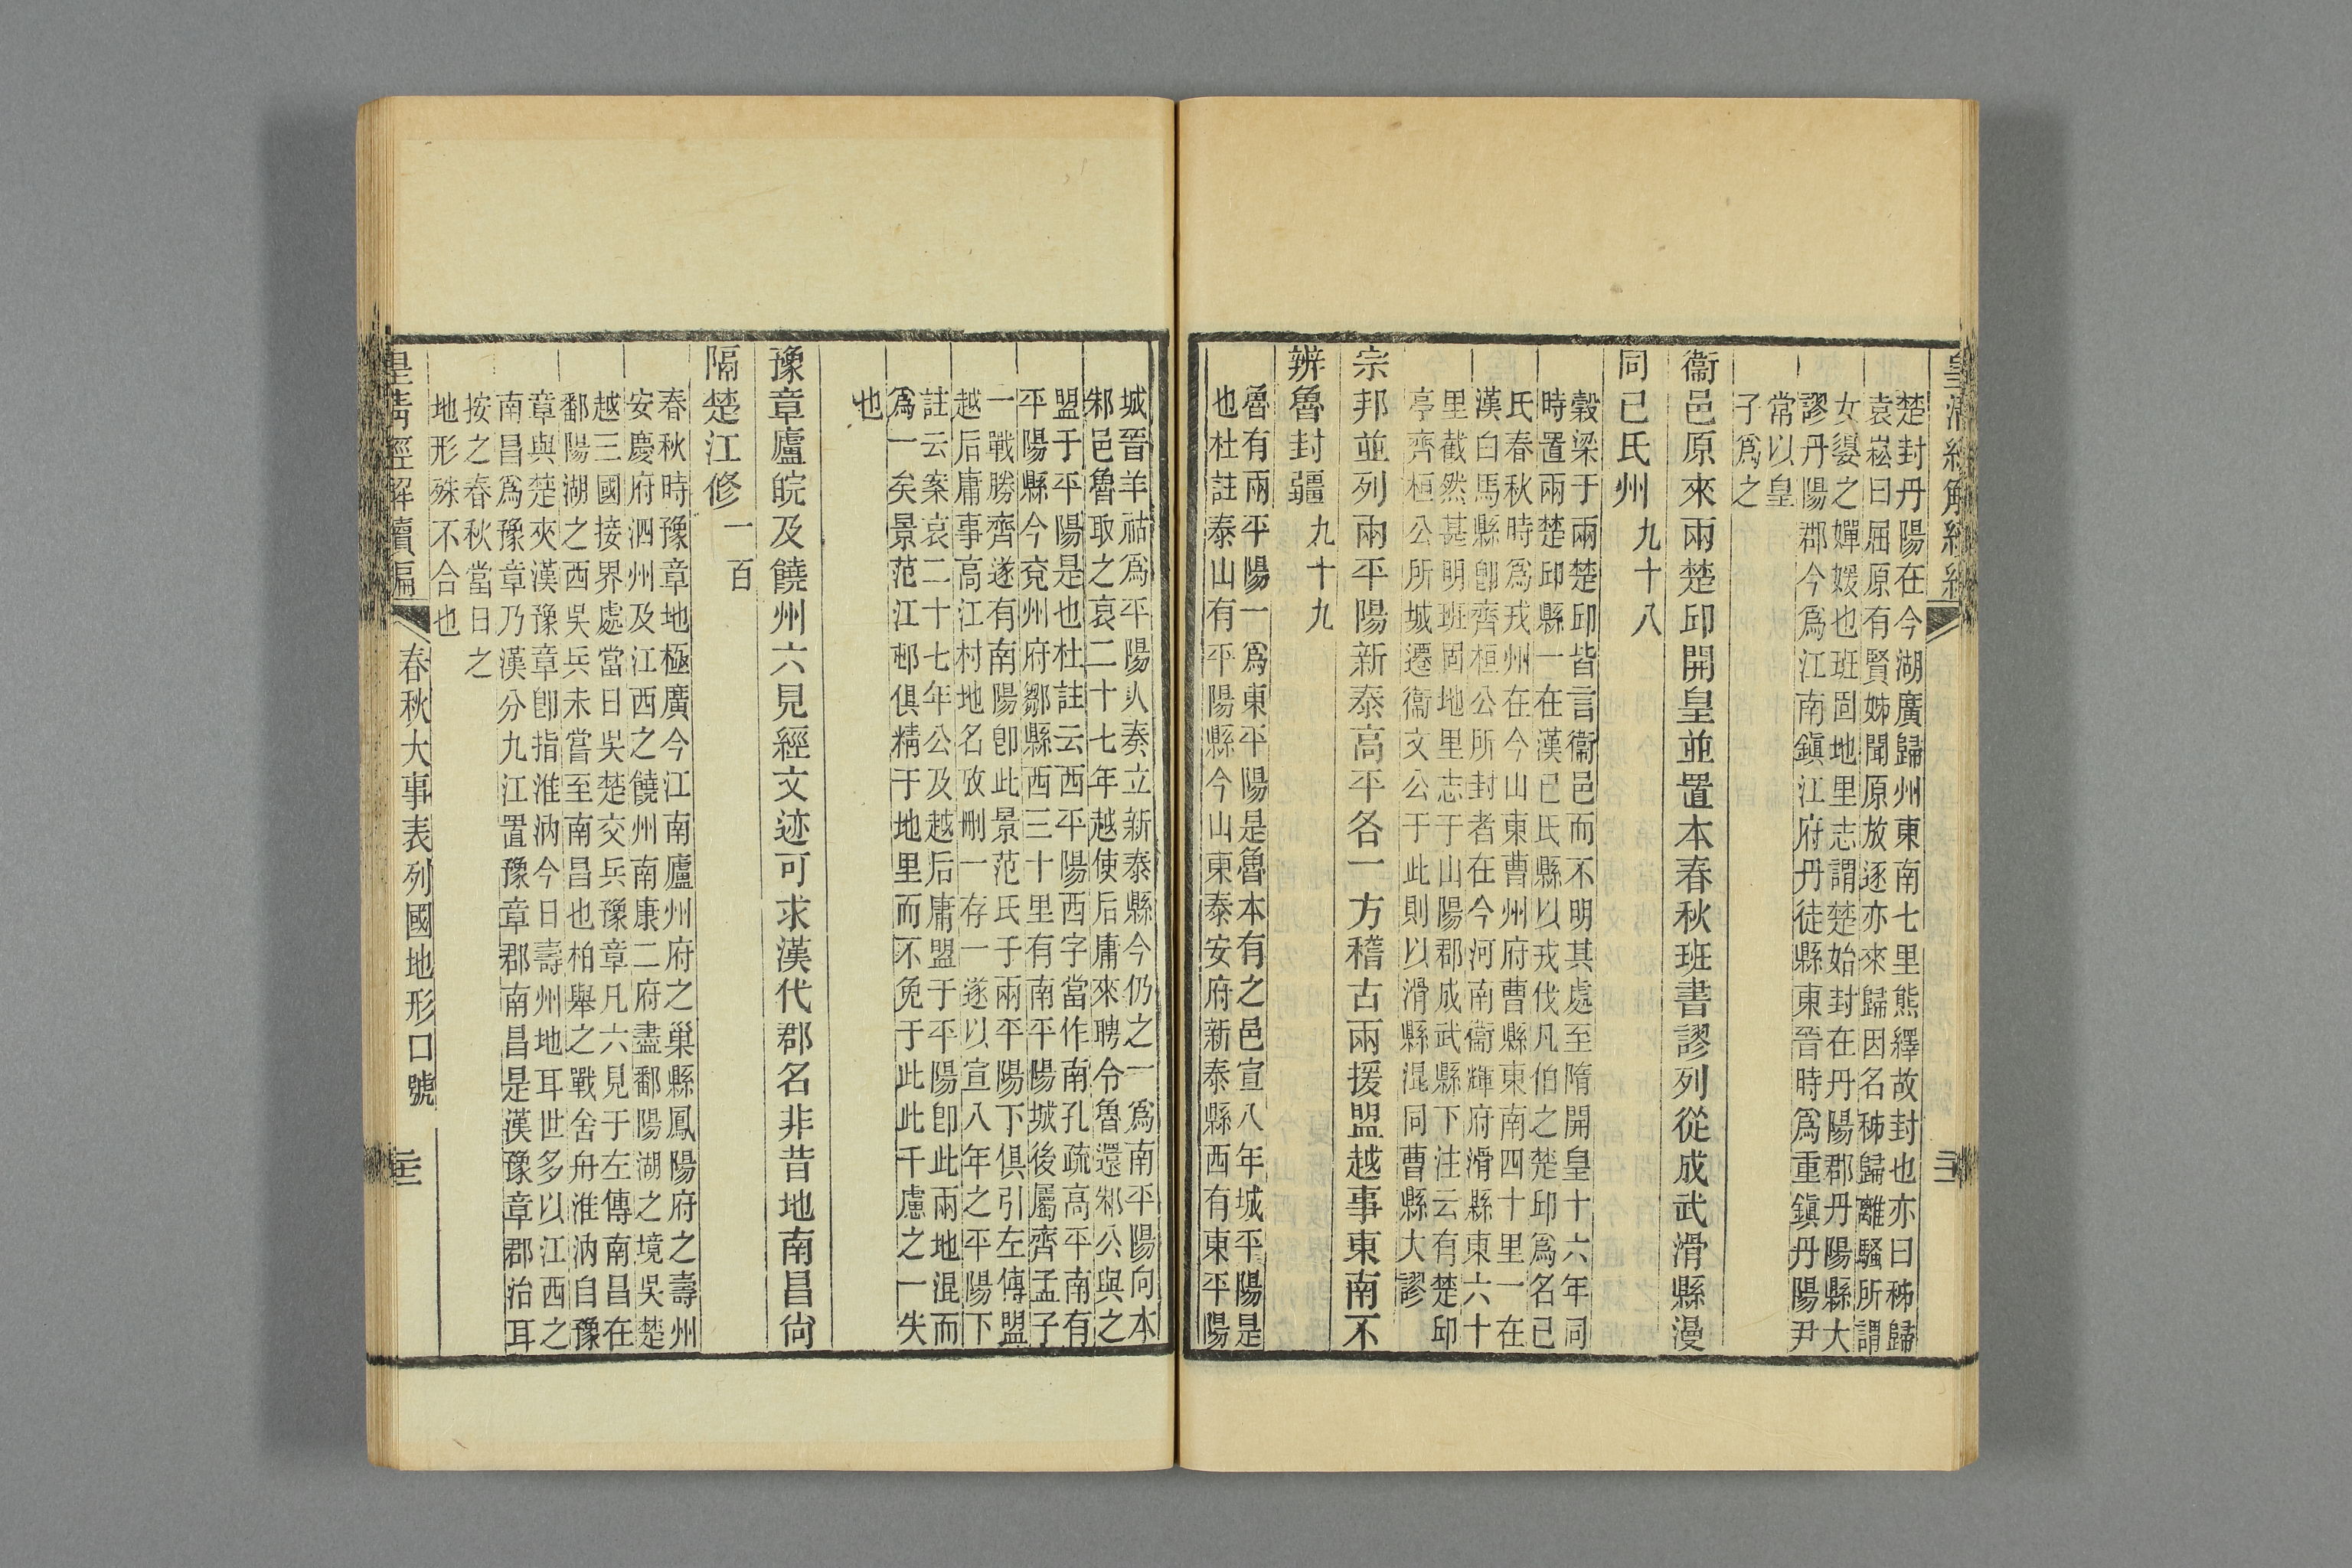 楚封丹陽在今湖廣歸州東南七里熊繹故封也亦曰秭歸
袁崧曰屈原有賢姊聞原放逐亦來歸因名秭歸離騷所謂
女嬃之嬋媛也班固地里志謂楚始封在丹陽郡丹陽縣大
謬丹陽郡今爲江南鎭江府丹徒縣東晉時爲重鎭丹陽尹
常以皇
子爲之
衞邑原來兩楚邱開皇並置本春秋班書謬列從成武滑縣漫
同已氏州 九十八
榖梁于兩楚邱皆言衞邑而不明其處至隋開皇十六年同
時置兩楚邱縣一在漢已氏縣以戎伐凡伯之楚邱爲名已
氏春秋時爲戎州在今山東曹州府曹縣東南四十里一在
漢白馬縣卽齊桓公所封者在今河南衞輝府滑縣東六十
里截然甚明班固地里志于山陽郡成武縣下注云有楚邱
亭齊桓公所城遷衞文公于此則以滑縣混同曹縣大謬
宗邦並列兩平陽新泰高平各一方稽古兩援盟越事東南不
辨魯封疆 九十九
魯有兩平陽一爲東平陽是魯本有之邑宣八年城平陽是
也杜註泰山有平陽縣今山東泰安府新泰縣西有東平陽
城晉羊祜爲平陽人奏立新泰縣今仍之一爲南平陽向本
邾邑魯取之哀二十七年越使后庸來聘令魯還邾公與之
盟于平陽是也杜註云西平陽西字當作南孔疏高平南有
平陽縣今兗州府鄒縣西三十里有南平陽城後屬齊孟子
一戰勝齊遂有南陽卽此景范氏于兩平陽下俱引左傳盟
越后庸事高江村地名攷刪一存一遂以宣八年之平陽下
註云案哀二十七年公及越后庸盟于平陽卽此兩地混而
爲一矣景范江邨俱精于地里而不免于此此千慮之一失
也
豫章廬皖及饒州六見經文迹可求漢代郡名非昔地南昌尙
隔楚江修 一百
春秋時豫章地極廣今江南廬州府之巢縣鳳陽府之壽州
安慶府泗州及江西之饒州南康二府盡鄱陽湖之境吳楚
越三國接界處當日吳楚交兵豫章凡六見于左傳南昌在
鄱陽湖之西吳兵未嘗至南昌也柏舉之戰舍舟淮汭自豫
章與楚夾漢豫章卽指淮汭今日壽州地耳世多以江西之
南昌爲豫章乃漢分九江置豫章郡南昌是漢豫章郡治耳
按之春秋當日之
地形殊不合也
皇清經解續編
春秋大事表列國地形口號